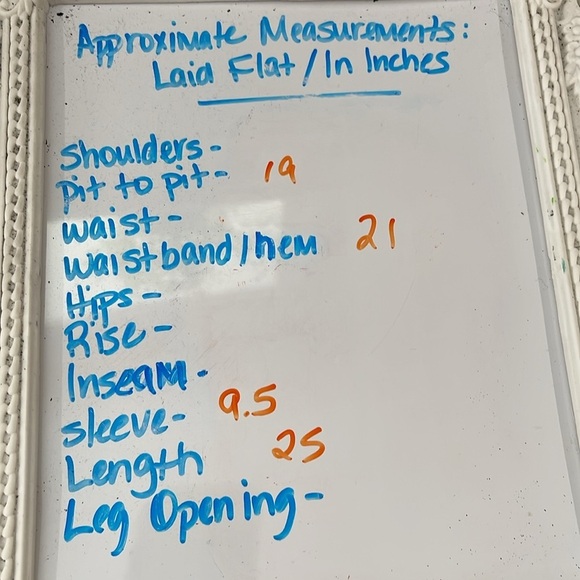 Approximate Measurements:
Laid Flat / In Inches
Shoulders -
Pit to pit - 19
Waist -
Waistband / hem 21
Hips -
Rise -
Inseam -
Sleeve - 9.5
Length 25
Leg Opening -